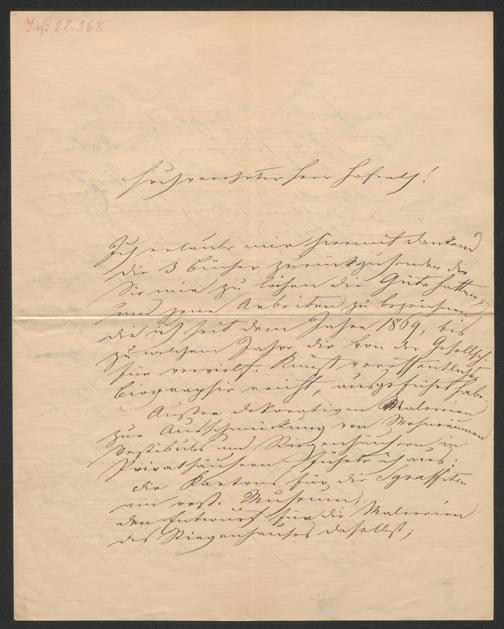 J.N. 22.568
Hochverehrter Herr Hofrath!
Ich erlaube mir hiermit dankend
die 3 Bücher zurückzusenden die
Sie mir zu leihen die Güte hatten,
und jene Arbeiten zu bezeichnen
die ich seit dem Jahre 1869, bis
zu welchem Jahre die von der Gesellsch.
für vervielf. Kunst veröffentlichte
Biographie reicht, ausgeführt habe.
Außer dekorativen Malereien
zur Ausschmückung von Wohnräumen
Vestibuls und Stiegenhäusern in
Privathäusern führte ich aus:
die Kartons für die Sgraffiten
am oest. Museum;
den Entwurf für die Malereien
des Stiegenhauses daselbst,